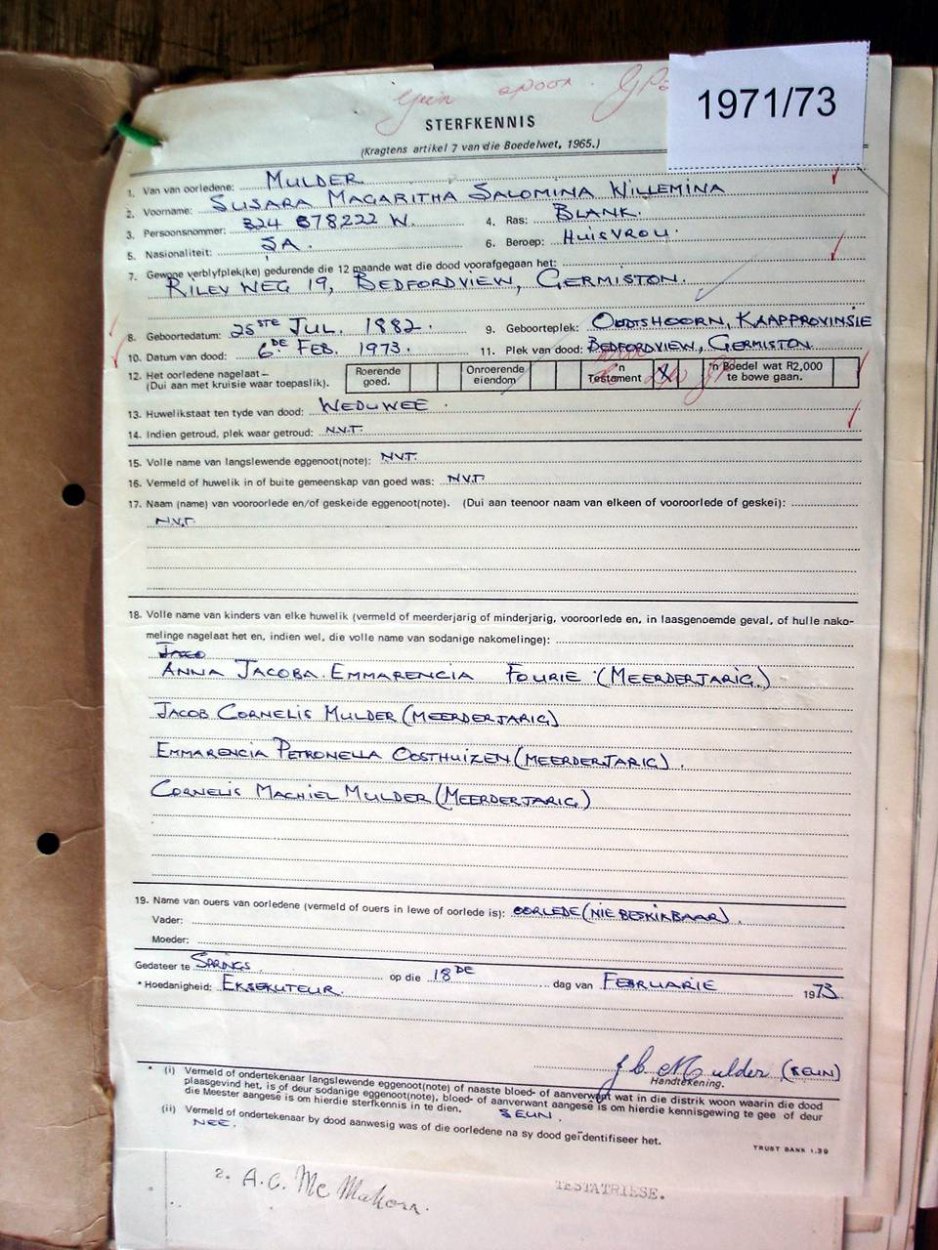 Geen spoor.
1971/73
STERFKENNIS
(Kragtens artikel 7 van die Boedelwet, 1965.)
1. Van van oorledene: MULDER
2. Voorname: SUSARA MAGARITHA SALOMINA WILLEMINA
3. Persoonsnommer: 324 678222 W. 4. Ras: BLANK.
5. Nasionaliteit: SA. 6. Beroep: HUISVROU.
7. Gewone verblyfplek(ke) gedurende die 12 maande wat die dood voorafgegaan het:
RILEY WEG 19, BEDFORDVIEW, GERMISTON.
8. Geboortedatum: 25STE JUL. 1882. 9. Geboorteplek: OUDTSHOORN, KAAPPROVINSIE
10. Datum van dood: 6DE FEB. 1973. 11. Plek van dood: BEDFORDVIEW, GERMISTON
12. Het oorledene nagelaat— Roerende goed. Onroerende eiendom 'n Testament X 'n Boedel wat R2,000 te bowe gaan.
(Dui aan met kruisie waar toepaslik).
13. Huwelikstaat ten tyde van dood: WEDUWEE.
14. Indien getroud, plek waar getroud: N.V.T.
15. Volle name van langslewende eggenoot(note): NVT.
16. Vermeld of huwelik in of buite gemeenskap van goed was: N.V.T
17. Naam (name) van vooroorlede en/of geskeide eggenoot(note). (Dui aan teenoor naam van elkeen of vooroorlede of geskei):
N.V.T
18. Volle name van kinders van elke huwelik (vermeld of meerderjarig of minderjarig, vooroorlede en, in laasgenoemde geval, of hulle nako-
melinge nagelaat het en, indien wel, die volle name van sodanige nakomelinge):
ANNA JACOBA EMMARENCIA FOURIE (MEERDERJARIG.)
JACOB CORNELIS MULDER (MEERDERJARIG)
EMMARENCIA PETRONELLA OOSTHUIZEN (MEERDERJARIG).
CORNELIS MACHIEL MULDER (MEERDERJARIG)
19. Name van ouers van oorledene (vermeld of ouers in lewe of oorlede is): OORLEDE (NIE BESKIKBAAR).
Vader:
Moeder:
Gedateer te SPRINGS. op die 18DE dag van FEBRUARIE 1973.
* Hoedanigheid: EKSEKUTEUR.
J.C. Mulder (SEUN)
Handtekening.
* (i) Vermeld of ondertekenaar langslewende eggenoot(note) of naaste bloed- of aanverwant wat in die distrik woon waarin die dood
plaasgevind het, is of deur sodanige eggenoot(note), bloed- of aanverwant aangesê is om hierdie kennisgewing te gee of deur
die Meester aangesê is om hierdie sterfkennis in te dien. SEUN.
(ii) Vermeld of ondertekenaar by dood aanwesig was of die oorledene na sy dood geïdentifiseer het.
NEE.
TRUST BANK 1.39
2. A.C. Mc Mahon.
TESTATRIESE.